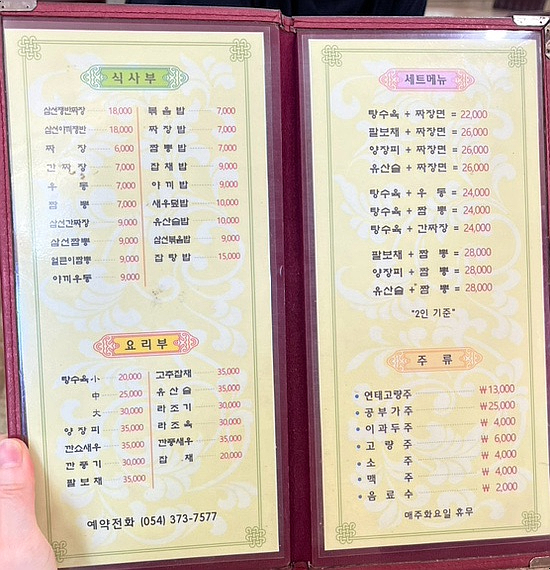 식사부
삼선쟁반짜장 18,000
삼선야끼쟁반 18,000
짜 장 6,000
간 짜 장 7,000
우 동 7,000
짬 뽕 7,000
삼선간짜장 9,000
삼선짬뽕 9,000
얼큰이짬뽕 9,000
야끼우동 9,000
볶음밥 7,000
짜장밥 7,000
짬뽕밥 7,000
잡채밥 9,000
야끼밥 9,000
새우덮밥 10,000
유산슬밥 10,000
삼선볶음밥 9,000
잡탕밥 15,000
요리부
탕수육 小 20,000
中 25,000
大 30,000
양장피 35,000
깐쇼새우 35,000
깐풍기 30,000
팔보채 35,000
고추잡채 35,000
유산슬 35,000
라조기 30,000
라조육 30,000
깐풍새우 35,000
잡 채 20,000
예약전화 (054) 373-7577
세트메뉴
탕수육 + 짜장면 = 22,000
팔보채 + 짜장면 = 26,000
양장피 + 짜장면 = 26,000
유산슬 + 짜장면 = 26,000
탕수육 + 우 동 = 24,000
탕수육 + 짬 뽕 = 24,000
탕수육 + 간짜장 = 24,000
팔보채 + 짬 뽕 = 28,000
양장피 + 짬 뽕 = 28,000
유산슬 + 짬 뽕 = 28,000
"2인 기준"
주 류
• 연태고량주 ₩13,000
• 공부가주 ₩25,000
• 이과두주 ₩ 4,000
• 고 량 주 ₩ 6,000
• 소 주 ₩ 4,000
• 맥 주 ₩ 4,000
• 음 료 수 ₩ 2,000
매주화요일 휴무